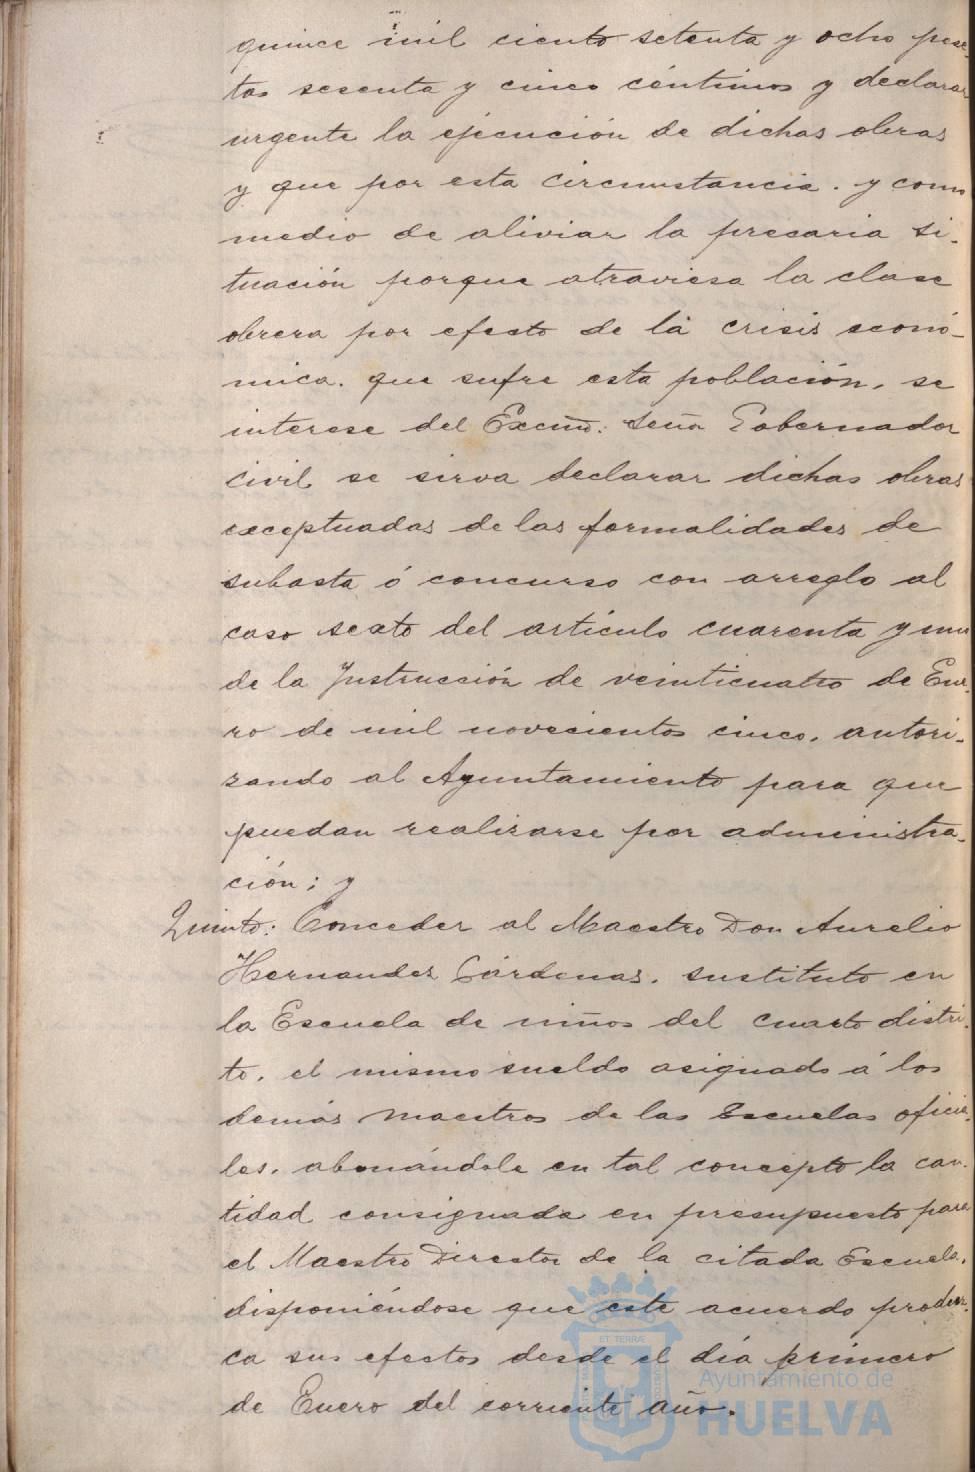 quince mil ciento setenta y ocho pese-
tas sesenta y cinco céntimos y declarar
urgente la ejecución de dichas obras
y que por esta circunstancia. y como
medio de aliviar la precaria si-
tuación porque atraviesa la clase
obrera por efecto de la crisis econó-
mica. que sufre esta población, se
interese del Excmo. Señor Gobernador
civil se sirva declarar dichas obras
exceptuadas de las formalidades de
subasta ó concurso con arreglo al
caso sexto del artículo cuarenta y uno
de la Instrucción de veinticuatro de Ene-
ro de mil novecientos cinco, autori-
zando al Ayuntamiento para que
puedan realizarse por administra-
ción; y
Quinto: Conceder al Maestro Don Aurelio
Hernandez Cárdenas, sustituto en
la Escuela de niños del cuarto distri-
to, el mismo sueldo asignado á los
demás maestros de las Escuelas oficia-
les, abonándole en tal concepto la can-
tidad consignada en presupuesto para
el Maestro Director de la citada Escuela,
disponiéndose que este acuerdo produz-
ca sus efectos desde el día primero
de Enero del corriente año.
ET TERRÆ
Ayuntamiento de
HUELVA